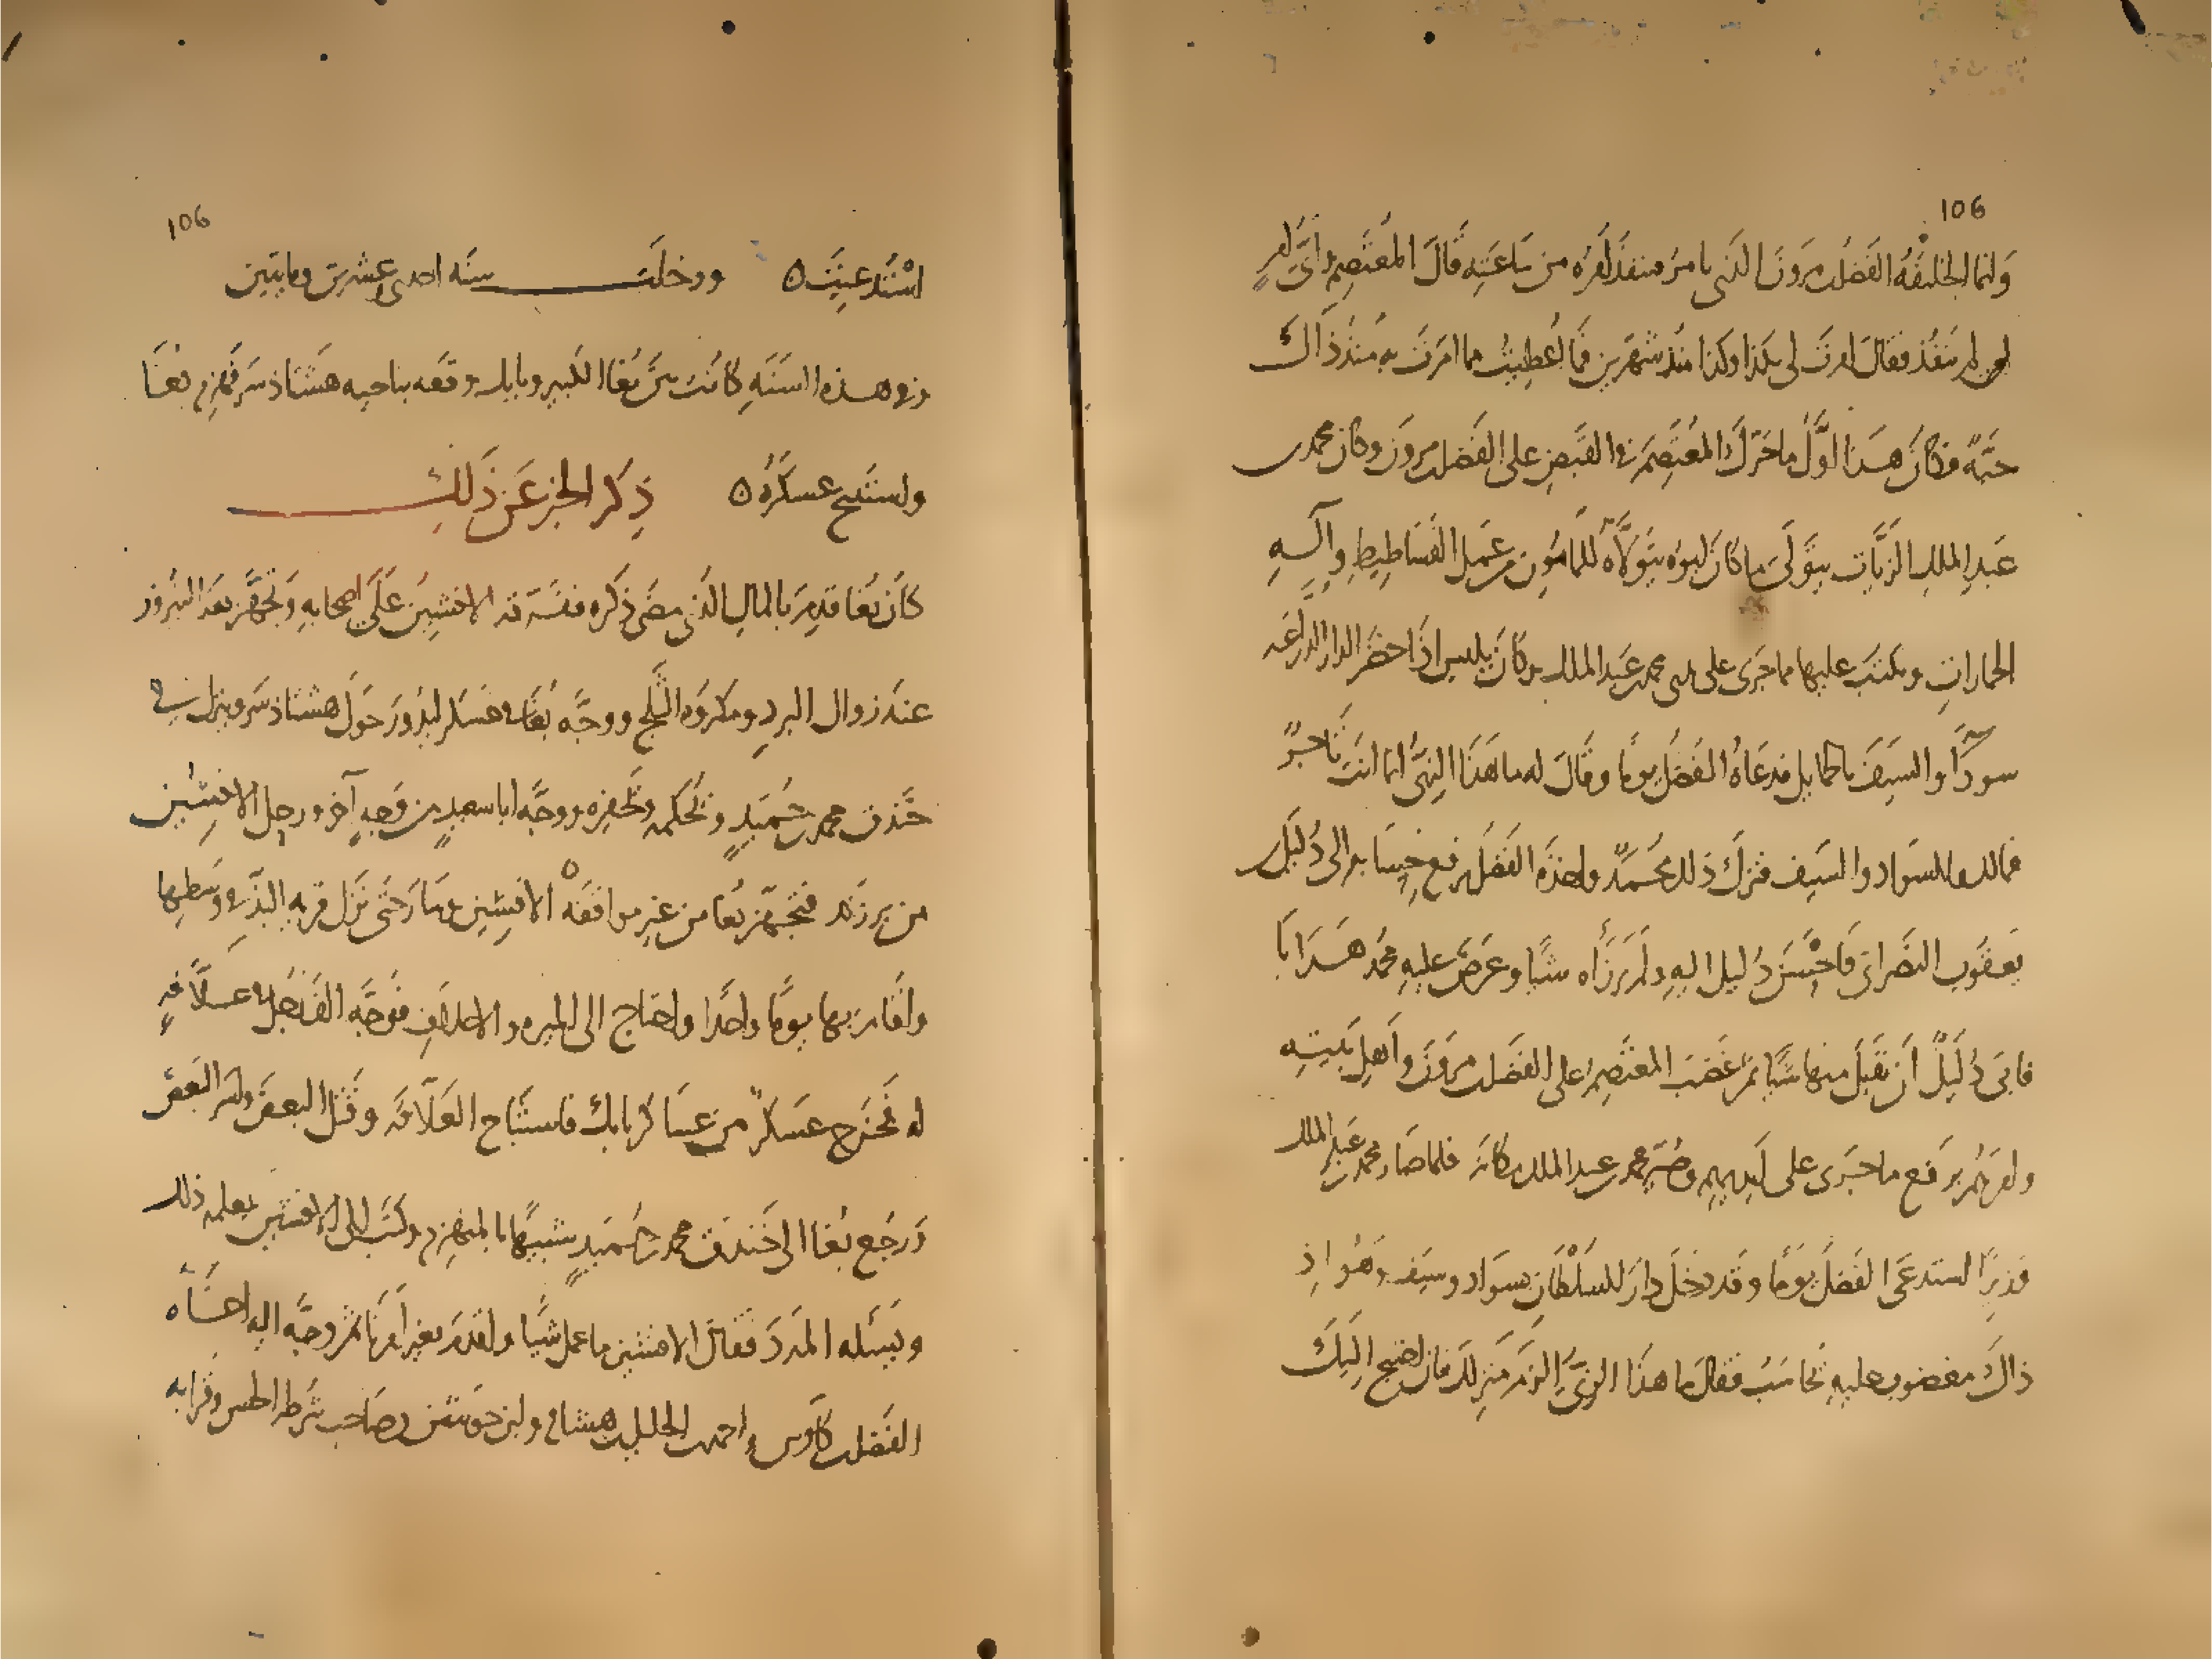 106
وانما الخليفة الفضل بن مروان الذى يامر فينفذ امره من ساعته قال المعتصم واى امر
لى لم ينفذ فقال امرت لى بكذا وكذا منذ شهرين فما اعطيت مما امرت به منذ ذاك
حبّة فكان هذا اوّل ما حرّك المعتصم فى القبض على الفضل بن مروان وكان محمد بن
عبد الملك الزيّات يتولى ما كان ابوه يتولاه للمامون من عمل الفساطيط وآلة
الجمازات ويكتب عليها مما جرى على يدى محمد بن عبد الملك وكان يلبس اذا حضر الدار الدراعه
سودآ والسيف بحمايل فدعاه الفضل يوما وقال له ما هذا الزىّ انما انت تاجرٌ
فمالك وللسواد والسيف فترك ذلك محمّدٌ واخذه الفضل برفع حسابه الى دُليل بن
يعقوب النصرانى فاحسن دُليل اليه ولم يرزأه شيّا وعرض عليه محمد هدايا
فابى دُليلٌ ان يقبل منها شيّا ثم غضب المعتصم على الفضل بن مروان واهل بيته
وامرهم برفع ما جرى على ايديهم وصيّر محمد بن عبد الملك مكانه فلما صار محمد بن عبد الملك
وزيرًا استدعى الفضل يومًا وقد دخل دار السلطان بسواد وسيف وهو اذ
ذاك مغضوب عليه يحاسب فقال ما هذا الزىّ الزم منزلك فان احتيج اليك
106
استُدعيت ٥ ودخلت سنه احدى وعشرين ومايتين
وفى هذه السنه كانت بين بُغا الكبير وبابك وقعه بناحيه هشتاذسر فهُزم بغا
واستبيح عسكره ٥ ذكر الخبر عن ذلك
كان بُغا قدم بالمال الذى مضى ذكره ففرّقه الافشين على اصحابه وتجهّز بعد النيروز
عند زوال البرد ومكروه الثلج ووجّه بُغا فى عسكر ليدور حول هشتاذسر وينزل فى
خندق محمد بن حُميد ويُحكمه ويحفره ووجّه ابا سعيد من وجه آخر ورحل الافشين
من برزند فتجهّز بُغا من غير موافقة الافشين وسار حتى نزل قريه البذّ فى وسطها
واقام بها يومًا واحدًا واحتاج الى الميره والاعلاف فوجّه الف رجل فى علّافة
له فخرج عسكرٌ من عساكر بابك فاستباح العلّافه وقتل البعض واسر البعض
ورجع بُغا الى خندق محمد بن حُميد شبيهًا بالمنهزم وكتب الى الافشين يعلمه ذلك
ويسئله المدد فقال الافشين ما عمل شيّا واقدم بغير امرنا ثم وجّه اليه اخاه
الفضل بن كاوس واحمد بن الخليل بن هشام وابن جوشن وصاحب شرطه الحسن وقرابه